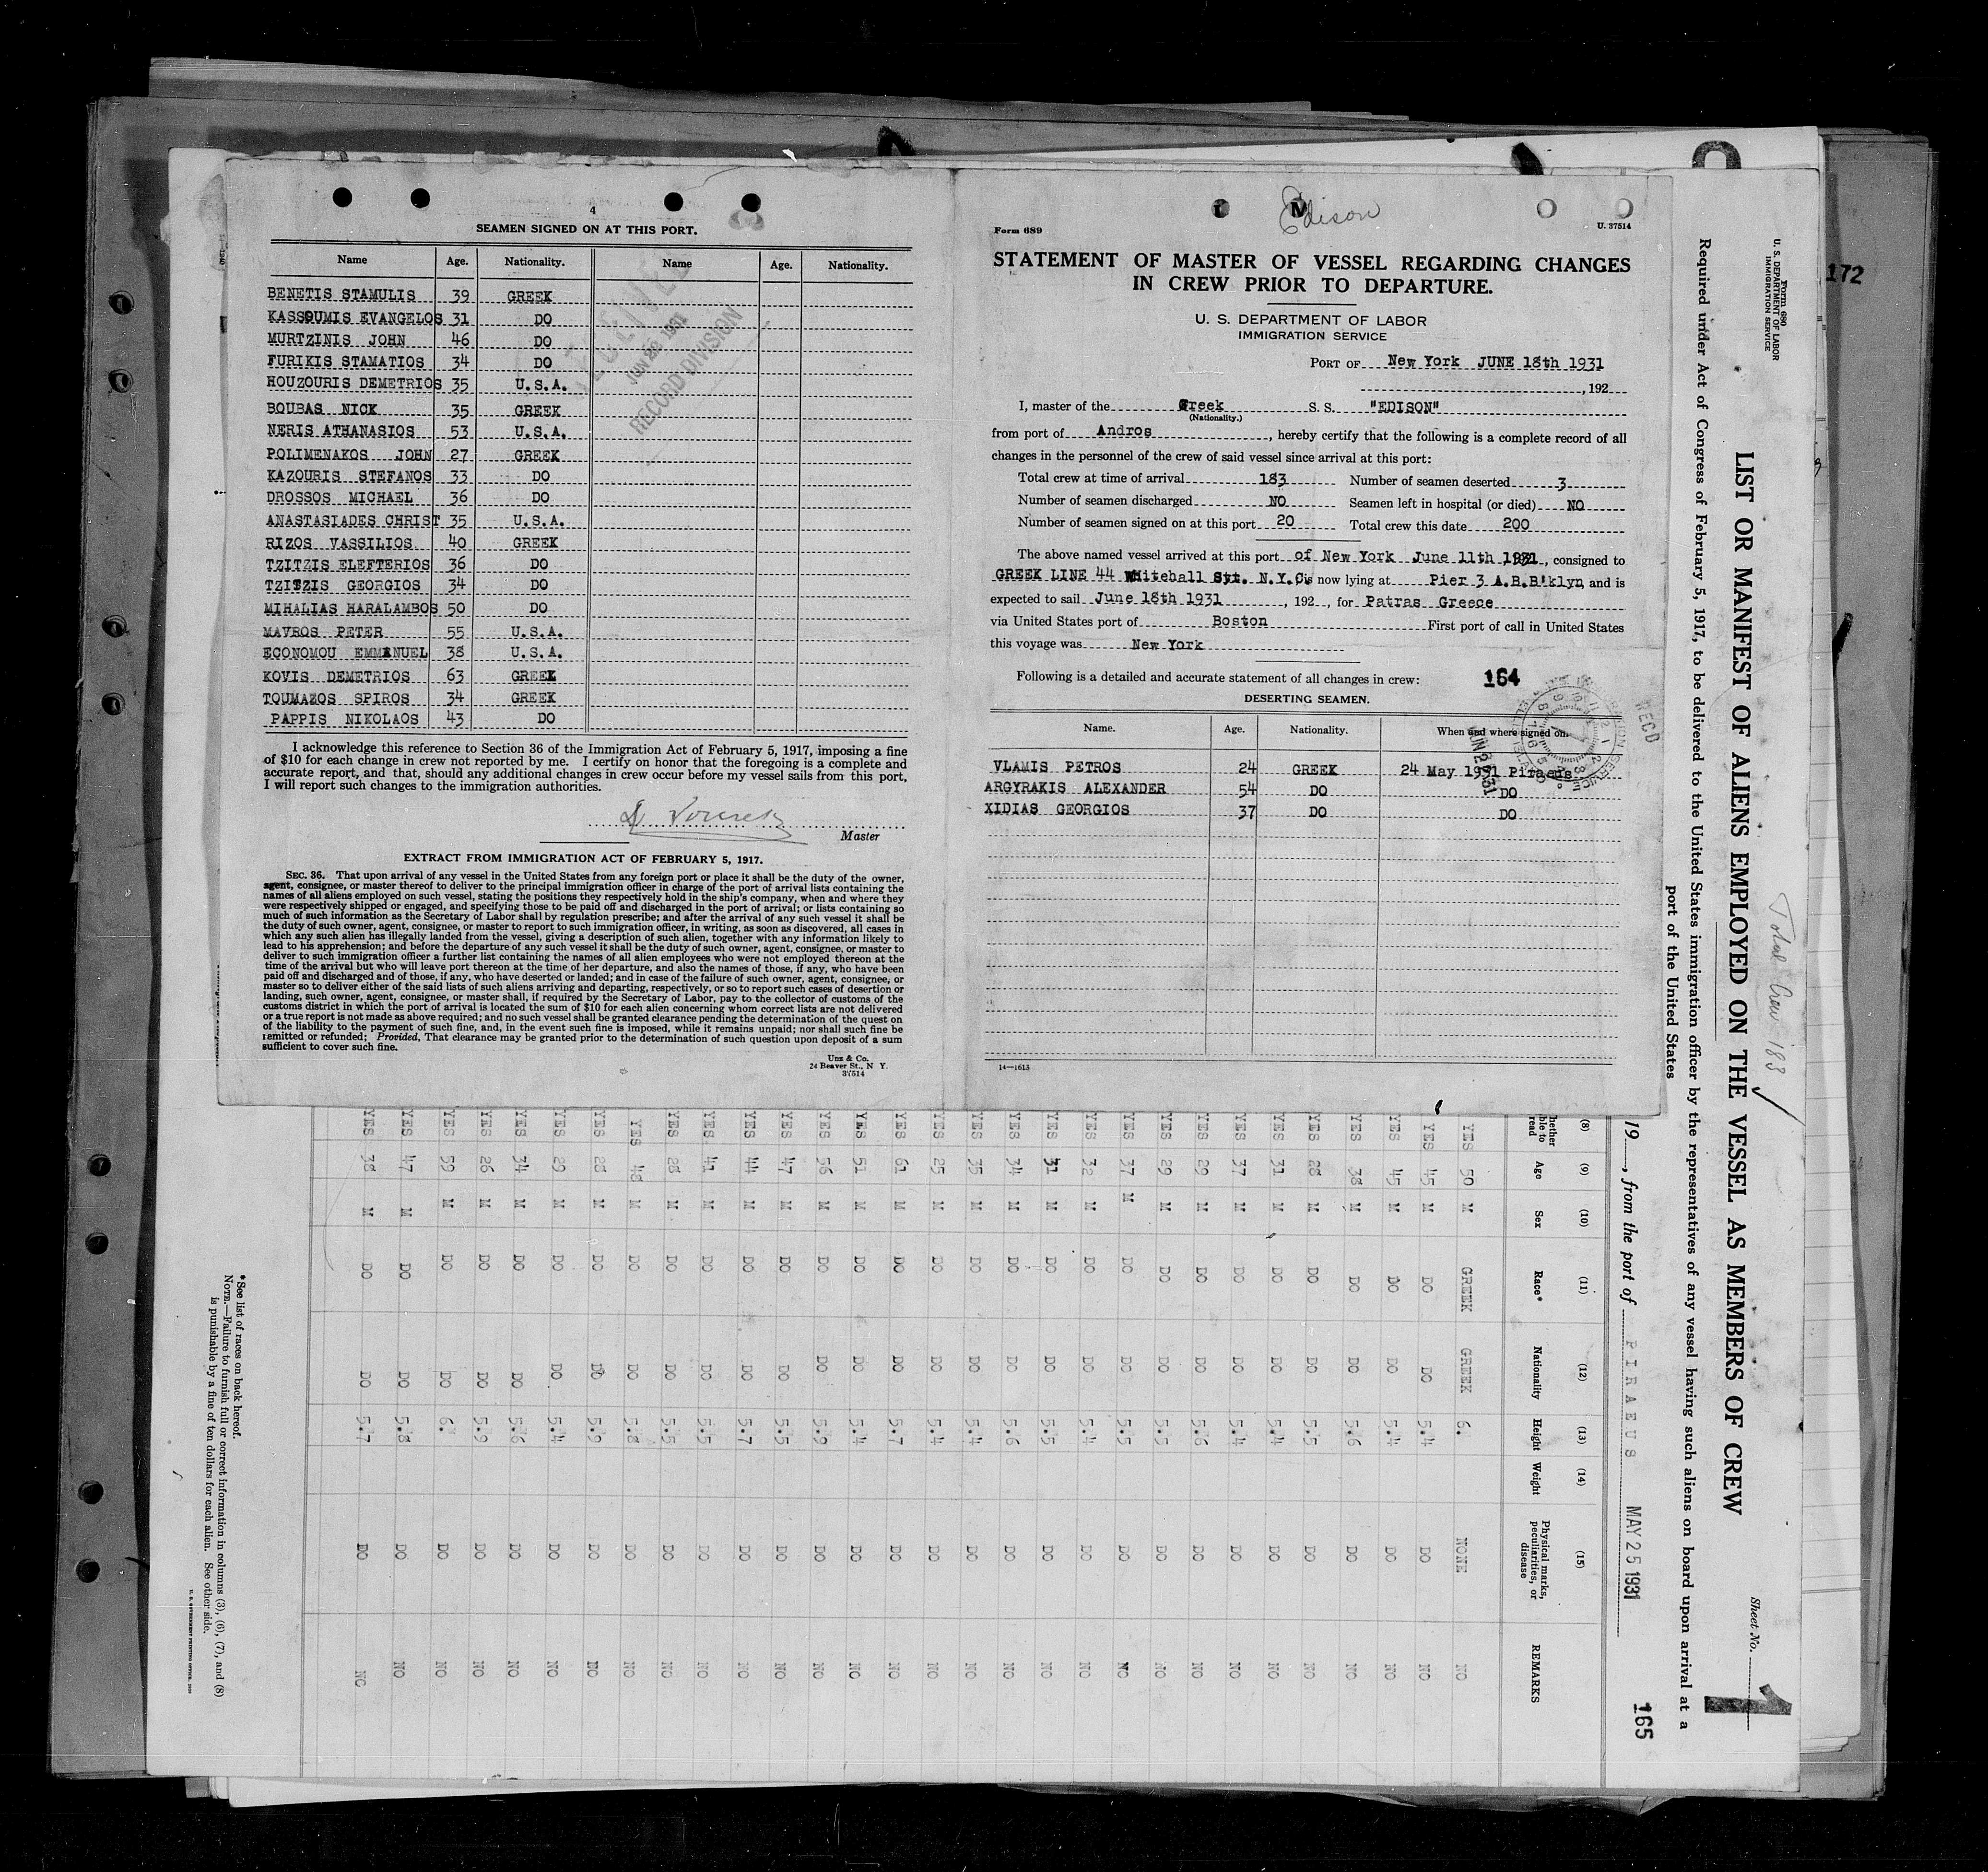 4
SEAMEN SIGNED ON AT THIS PORT.
Name Age. Nationality. Name Age. Nationality.
BENETIS STAMULIS 39 GREEK
KASSOUMIS EVANGELOS 31 DO
MURTZINIS JOHN 46 DO
FURIKIS STAMATIOS 34 DO
HOUZOURIS DEMETRIOS 35 U.S.A.
BOUBAS NICK 35 GREEK
NERIS ATHANASIOS 53 U.S.A.
POLIMENAKOS JOHN 27 GREEK
KAZOURIS STEFANOS 33 DO
DROSSOS MICHAEL 36 DO
ANASTASIADES CHRIST 35 U.S.A.
RIZOS VASSILIOS 40 GREEK
TZITZIS ELEFTERIOS 36 DO
TZITZIS GEORGIOS 34 DO
MIHALIAS HARALAMBOS 50 DO
MAVROS PETER 55 U.S.A.
ECONOMOU EMMANUEL 38 U.S.A.
KOVIS DEMETRIOS 63 GREEK
TOUMAZOS SPIROS 34 GREEK
PAPPIS NIKOLAOS 43 DO
JUN 23 1931
RECORD DIVISION
I acknowledge this reference to Section 36 of the Immigration Act of February 5, 1917, imposing a fine
of $10 for each change in crew not reported by me. I certify on honor that the foregoing is a complete and
accurate report, and that, should any additional changes in crew occur before my vessel sails from this port,
I will report such changes to the immigration authorities.
Master
EXTRACT FROM IMMIGRATION ACT OF FEBRUARY 5, 1917.
SEC. 36. That upon arrival of any vessel in the United States from any foreign port or place it shall be the duty of the owner,
agent, consignee, or master thereof to deliver to the principal immigration officer in charge of the port of arrival lists containing the
names of all aliens employed on such vessel, stating the positions they respectively hold in the ship's company, when and where they
were respectively shipped or engaged, and specifying those to be paid off and discharged in the port of arrival; or lists containing so
much of such information as the Secretary of Labor shall by regulation prescribe; and after the arrival of any such vessel it shall be
the duty of such owner, agent, consignee, or master to report to such immigration officer, in writing, as soon as discovered, all cases in
which any such alien has illegally landed from the vessel, giving a description of such alien, together with any information likely to
lead to his apprehension; and before the departure of any such vessel it shall be the duty of such owner, agent, consignee, or master to
deliver to such immigration officer a further list containing the names of all alien employees who were not employed thereon at the
time of the arrival but who will leave port thereon at the time of her departure, and also the names of those, if any, who have been
paid off and discharged and of those, if any, who have deserted or landed; and in case of the failure of such owner, agent, consignee, or
master so to deliver either of the said lists of such aliens arriving and departing, respectively, or so to report such cases of desertion or
landing, such owner, agent, consignee, or master shall, if required by the Secretary of Labor, pay to the collector of customs of the
customs district in which the port of arrival is located the sum of $10 for each alien concerning whom correct lists are not delivered
or a true report is not made as above required; and no such vessel shall be granted clearance pending the determination of the quest on
of the liability to the payment of such fine, and, in the event such fine is imposed, while it remains unpaid; nor shall such fine be
remitted or refunded; Provided, That clearance may be granted prior to the determination of such question upon deposit of a sum
sufficient to cover such fine.
Unz & Co.
24 Beaver St., N Y.
37514
Edison
Form 689
U. 37514
STATEMENT OF MASTER OF VESSEL REGARDING CHANGES
IN CREW PRIOR TO DEPARTURE.
U. S. DEPARTMENT OF LABOR
IMMIGRATION SERVICE
PORT OF New York JUNE 18th 1931
, 192
I, master of the Greek S. S. "EDISON"
(Nationality.)
from port of Andros, hereby certify that the following is a complete record of all
changes in the personnel of the crew of said vessel since arrival at this port:
Total crew at time of arrival 183 Number of seamen deserted 3
Number of seamen discharged NO Seamen left in hospital (or died) NO
Number of seamen signed on at this port 20 Total crew this date 200
The above named vessel arrived at this port of New York June 11th 1931, consigned to
GREEK LINE 44 Whitehall Stt. N.Y.C. is now lying at Pier 3 A.B.B'klyn, and is
expected to sail June 18th 1931, 192 , for Patras Greece
via United States port of Boston First port of call in United States
this voyage was New York
Following is a detailed and accurate statement of all changes in crew: 164
DESERTING SEAMEN.
Name. Age. Nationality. When and where signed on.
VLAMIS PETROS 24 GREEK 24 May 1931 Piraeus
ARGYRAKIS ALEXANDER 54 DO DO
XIDIAS GEORGIOS 37 DO DO
RECD
14—1613
172
Form 680
U. S. DEPARTMENT OF LABOR
IMMIGRATION SERVICE
Total Crew 183
Sheet No. 1
LIST OR MANIFEST OF ALIENS EMPLOYED ON THE VESSEL AS MEMBERS OF CREW
Required under Act of Congress of February 5, 1917, to be delivered to the United States immigration officer by the representatives of any vessel having such aliens on board upon arrival at a
port of the United States
165
19 , from the port of PIRAEUS MAY 25 1931
(8) (9) (10) (11) (12) (13) (14) (15)
hether ble to read Age Sex Race* Nationality Height Weight Physical marks, peculiarities, or disease REMARKS
YES 50 M GREEK GREEK 6. NONE NO
YES 45 M DO DO 5.4 DO NO
YES 45 M DO DO 5.4 DO NO
YES 38 M DO DO 5.6 DO NO
YES 28 M DO DO 5.5 DO NO
YES 31 M DO DO 5.4 DO NO
YES 37 M DO DO 5.4 DO NO
YES 29 M DO DO 5.6 DO NO
YES 29 M DO DO 5.5 DO NO
YES 37 M DO DO 5.5 DO NO
YES 32 M DO DO 5.4 DO NO
YES 31 M DO DO 5.5 DO NO
YES 34 M DO DO 5.6 DO NO
YES 35 M DO DO 5.4 DO NO
YES 25 M DO DO 5.4 DO NO
YES 61 M DO DO 5.7 DO NO
YES 51 M DO DO 5.4 DO NO
YES 56 M DO DO 5.9 DO NO
YES 47 M DO DO 5.5 DO NO
YES 44 M DO DO 5.7 DO NO
YES 41 M DO DO 5.5 DO NO
YES 28 M DO DO 5.5 DO NO
YES 48 M DO DO 5.8 DO NO
YES 28 M DO DO 5.9 DO NO
YES 29 M DO DO 5.4 DO NO
YES 34 M DO DO 5.6 DO NO
YES 26 M DO DO 5.9 DO NO
YES 59 M DO DO 6. DO NO
YES 47 M DO DO 5.8 DO NO
YES 38 M DO DO 5.7 DO NO
*See list of races on back hereof.
NOTE.—Failure to furnish full or correct information in columns (3), (6), (7), and (8)
is punishable by a fine of ten dollars for each alien. See other side.